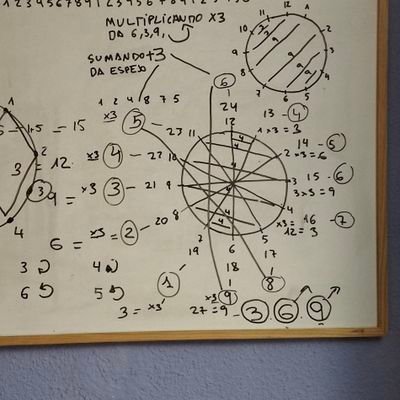 1 2 3 4 5 6 7 8 9 1 2 3 4 5 6 7 8 9
MULTIPLICANDO x3
DA 6,3,9,
SUMANDO +3
DA ESPEJO
1 2 4 8 7 5
12
11 1
10 2
9 3
8 4
7 5
6
9 9 9
6
1
24
12
x3 5 - 23 11
1 x3 = 3
13 - 4
x3 4 - 22 10
2 x3 = 6
14 - 5
9 = x3 3 - 21 9
3
3x3 = 9
15 - 6
6 = x3 = 2 - 20 8
4
x3 = 12 = 3
16 - 7
19 7
6
18
5
17
4 4 4 4
1
3 = x3'
1
x3 9
27 = 9
1
8
3 6 9
1
2
3
4
= 15
3 = 12
3
6
4
5